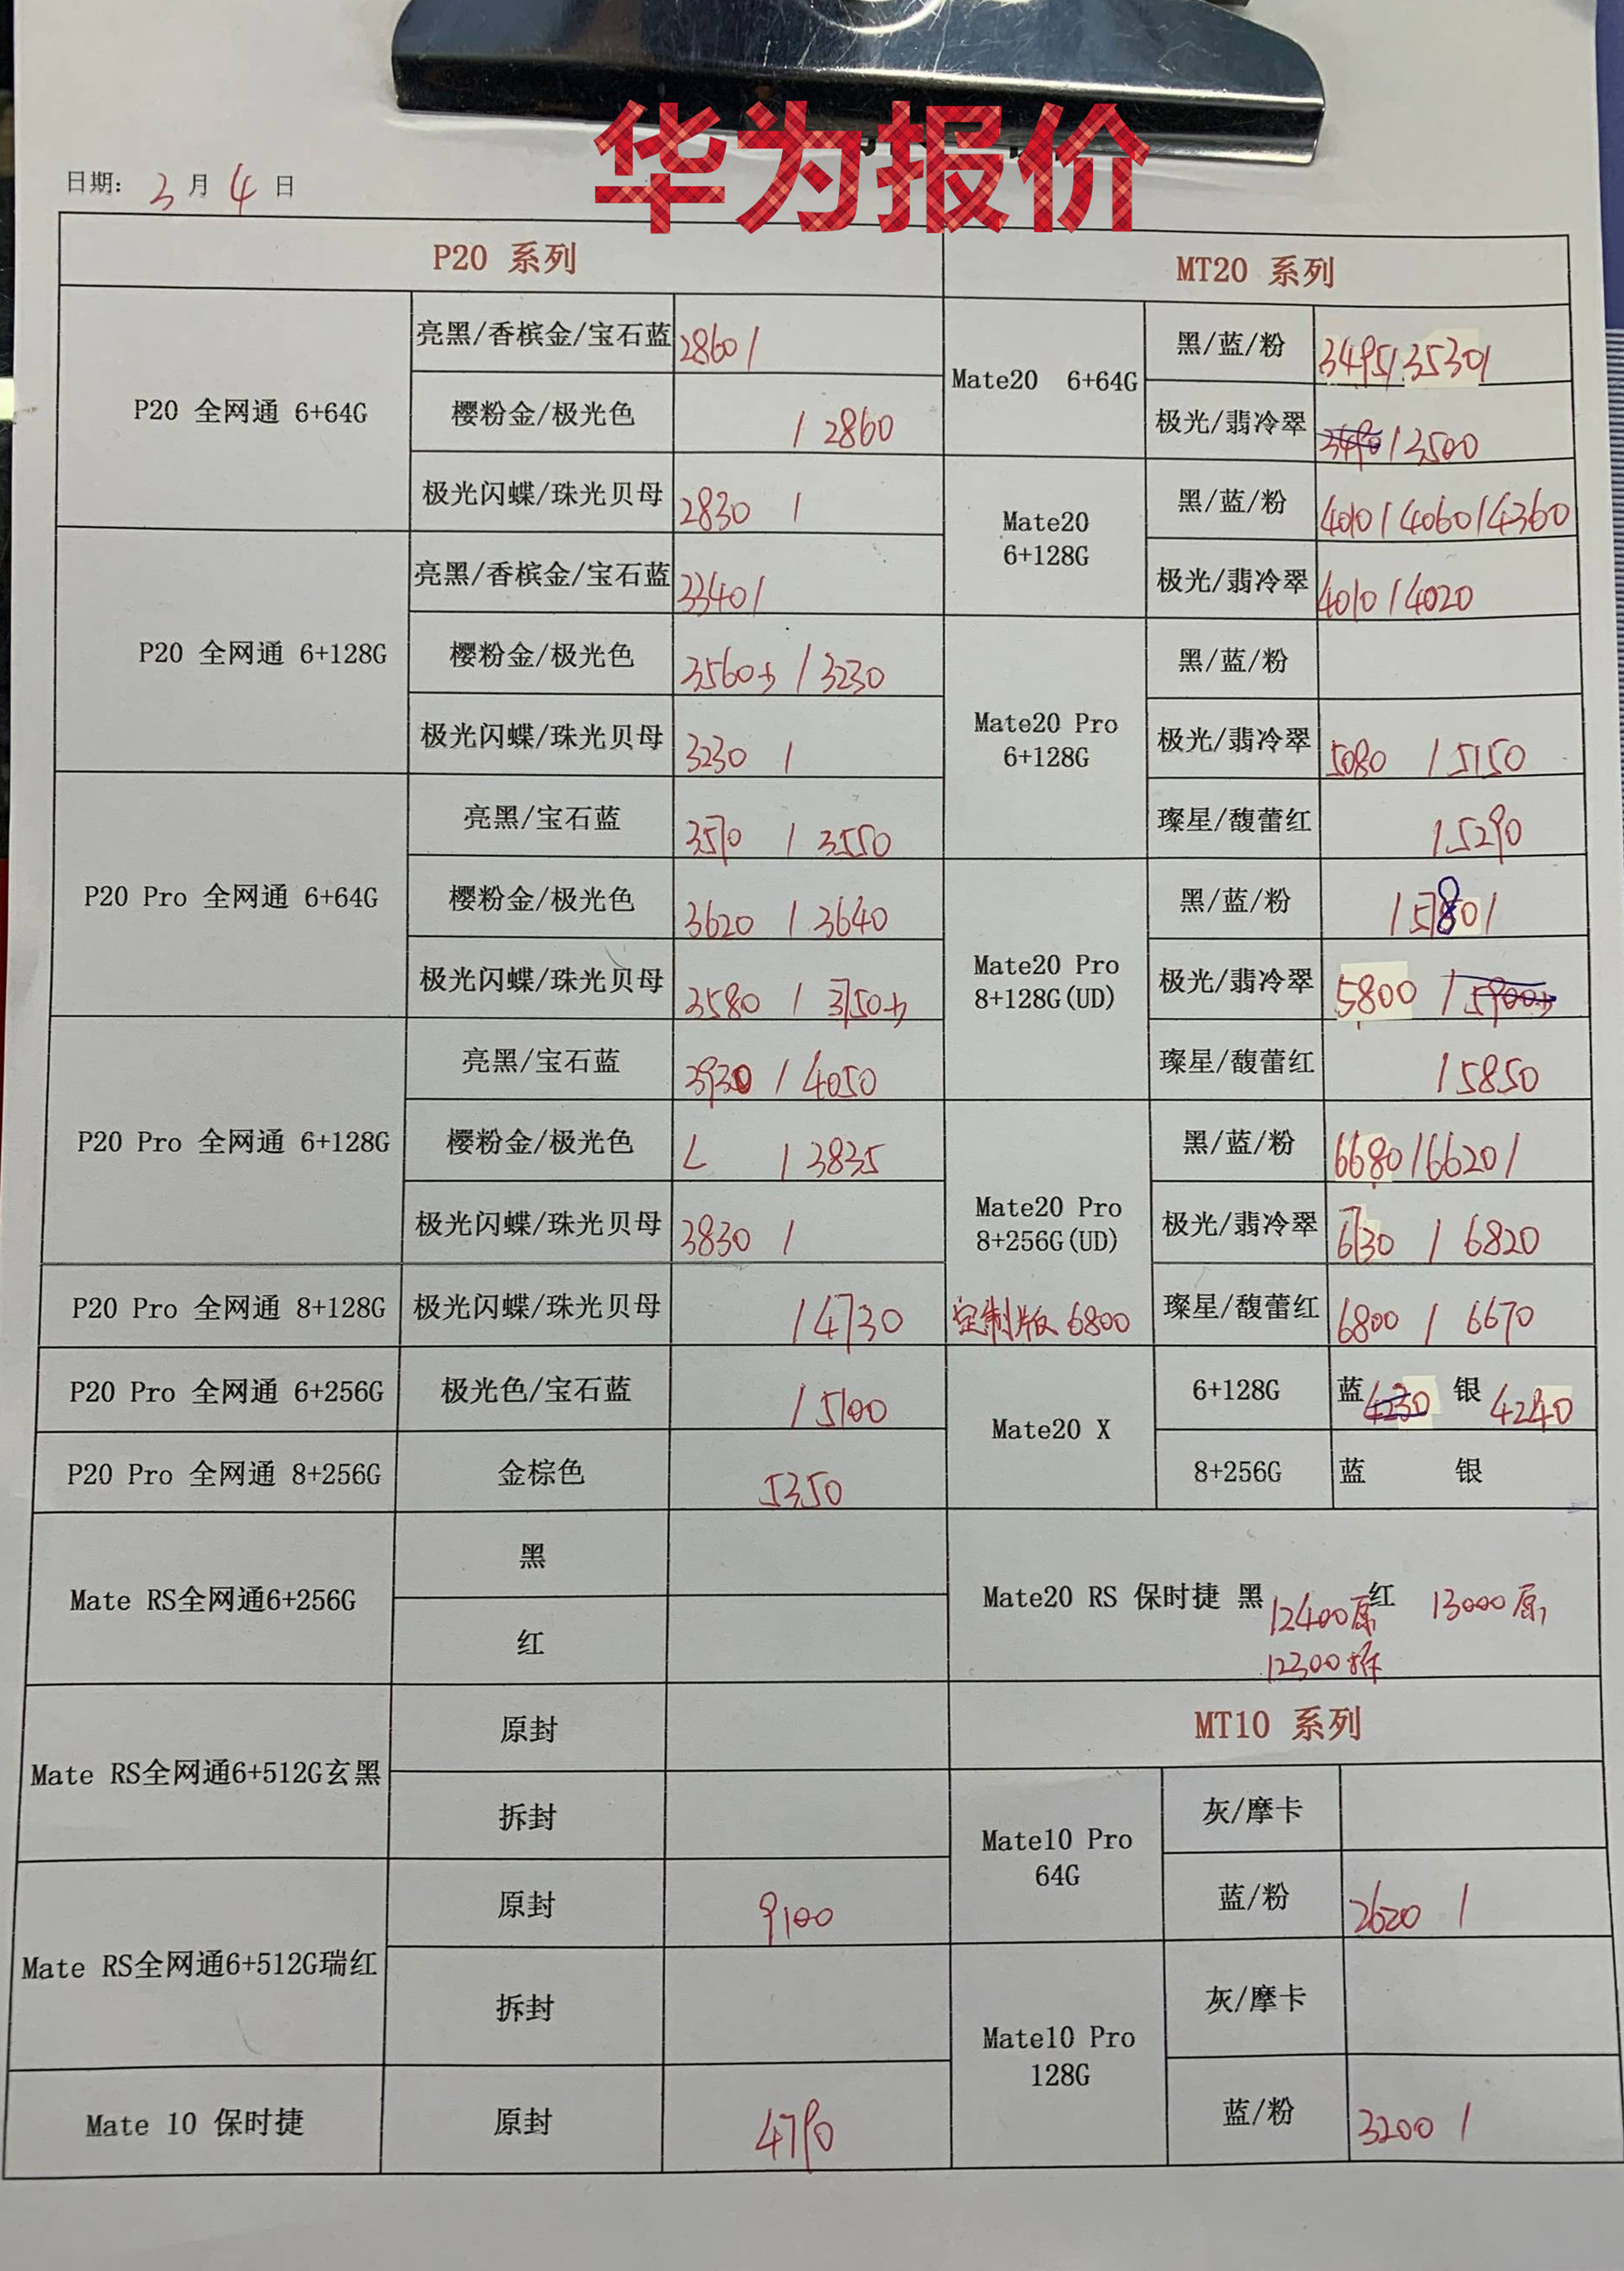 华为报价
日期: 3 月 4 日
P20 系列
P20 全网通 6+64G
亮黑/香槟金/宝石蓝 2860 /
樱粉金/极光色 / 2860
极光闪蝶/珠光贝母 2830 /
P20 全网通 6+128G
亮黑/香槟金/宝石蓝 3340 /
樱粉金/极光色 3560 / 3230
极光闪蝶/珠光贝母 3230 /
P20 Pro 全网通 6+64G
亮黑/宝石蓝 3570 / 3550
樱粉金/极光色 3620 / 3640
极光闪蝶/珠光贝母 3580 / 3750
P20 Pro 全网通 6+128G
亮黑/宝石蓝 3930 / 4050
樱粉金/极光色 / 3835
极光闪蝶/珠光贝母 3830 /
P20 Pro 全网通 8+128G 极光闪蝶/珠光贝母 / 4730
P20 Pro 全网通 6+256G 极光色/宝石蓝 / 5100
P20 Pro 全网通 8+256G 金棕色 5350
Mate RS全网通6+256G
黑
红
Mate RS全网通6+512G玄黑
原封
拆封
Mate RS全网通6+512G瑞红
原封 9100
拆封
Mate 10 保时捷 原封 4790
MT20 系列
Mate20 6+64G
黑/蓝/粉 3495/3530/
极光/翡冷翠 3490 / 3500
Mate20
6+128G
黑/蓝/粉 4010 / 4060 / 4360
极光/翡冷翠 4010 / 4020
Mate20 Pro
6+128G
黑/蓝/粉
极光/翡冷翠 5080 / 5150
璨星/馥蕾红 / 5290
Mate20 Pro
8+128G(UD)
黑/蓝/粉 / 5780 /
极光/翡冷翠 5800 / 5900
璨星/馥蕾红 / 5850
Mate20 Pro
8+256G(UD)
定制版 6800
黑/蓝/粉 6680 / 6620 /
极光/翡冷翠 6730 / 6820
璨星/馥蕾红 6800 / 6670
Mate20 X
6+128G 蓝 4230 银 4240
8+256G 蓝 银
Mate20 RS 保时捷 黑 12400原 红 13000原
12300拆
MT10 系列
Mate10 Pro
64G
灰/摩卡
蓝/粉 2620 /
Mate10 Pro
128G
灰/摩卡
蓝/粉 3200 /